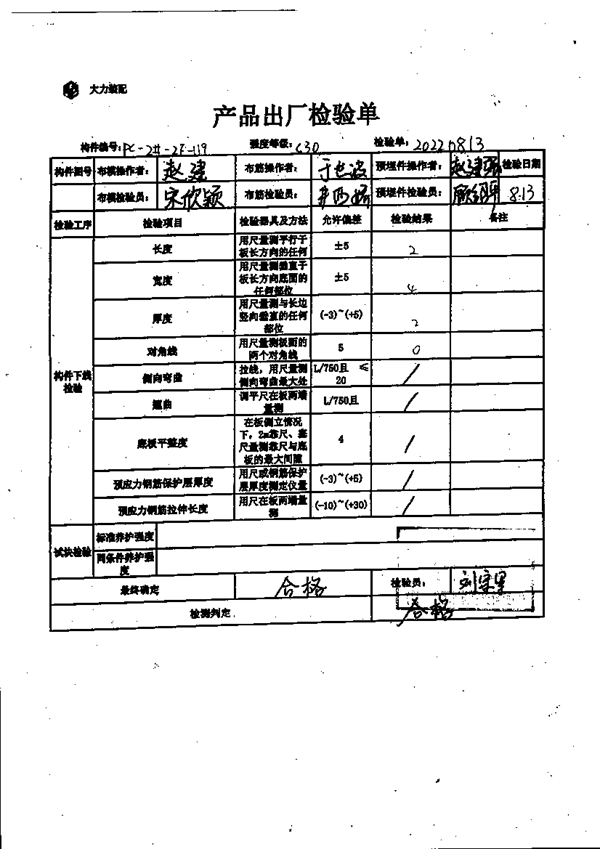 大力装配
产品出厂检验单
构件编号: PC-2#-2F-119 强度等级: C30 检验单: 20220813
构件图号 布模操作者: 赵建 布筋操作者: 预埋件操作者: 检验日期
布模检验员: 宋欣颖 布筋检验员: 预埋件检验员: 8.13
检验工序 检验项目 检验器具及方法 允许偏差 检验结果 备注
构件下线检验
长度 用尺量测平行于板长方向的任何 ±5 2
宽度 用尺量测垂直于板长方向底面的任何部位 ±5 4
厚度 用尺量测与长边竖向垂直的任何部位 (-3)~(+5) 2
对角线 用尺量测板面的两个对角线 5 0
侧向弯曲 拉线，用尺量测侧向弯曲最大处 L/750且 ≤20 /
翘曲 调平尺在板两端量测 L/750且 /
底板平整度 在板侧立情况下，2m靠尺、塞尺量测靠尺与底板的最大间隙 4 /
预应力钢筋保护层厚度 用尺或钢筋保护层厚度测定仪量 (-3)~(+5) /
预应力钢筋拉伸长度 用尺在板两端量测 (-10)~(+30) /
试块检验 标准养护强度
同条件养护强度
最终确定 合格 检验员:
检测判定 合格